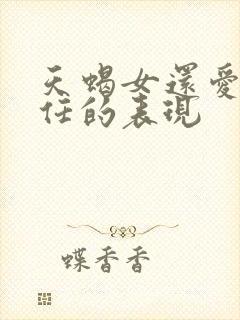 天蝎女還愛
任的表現
蝶香香